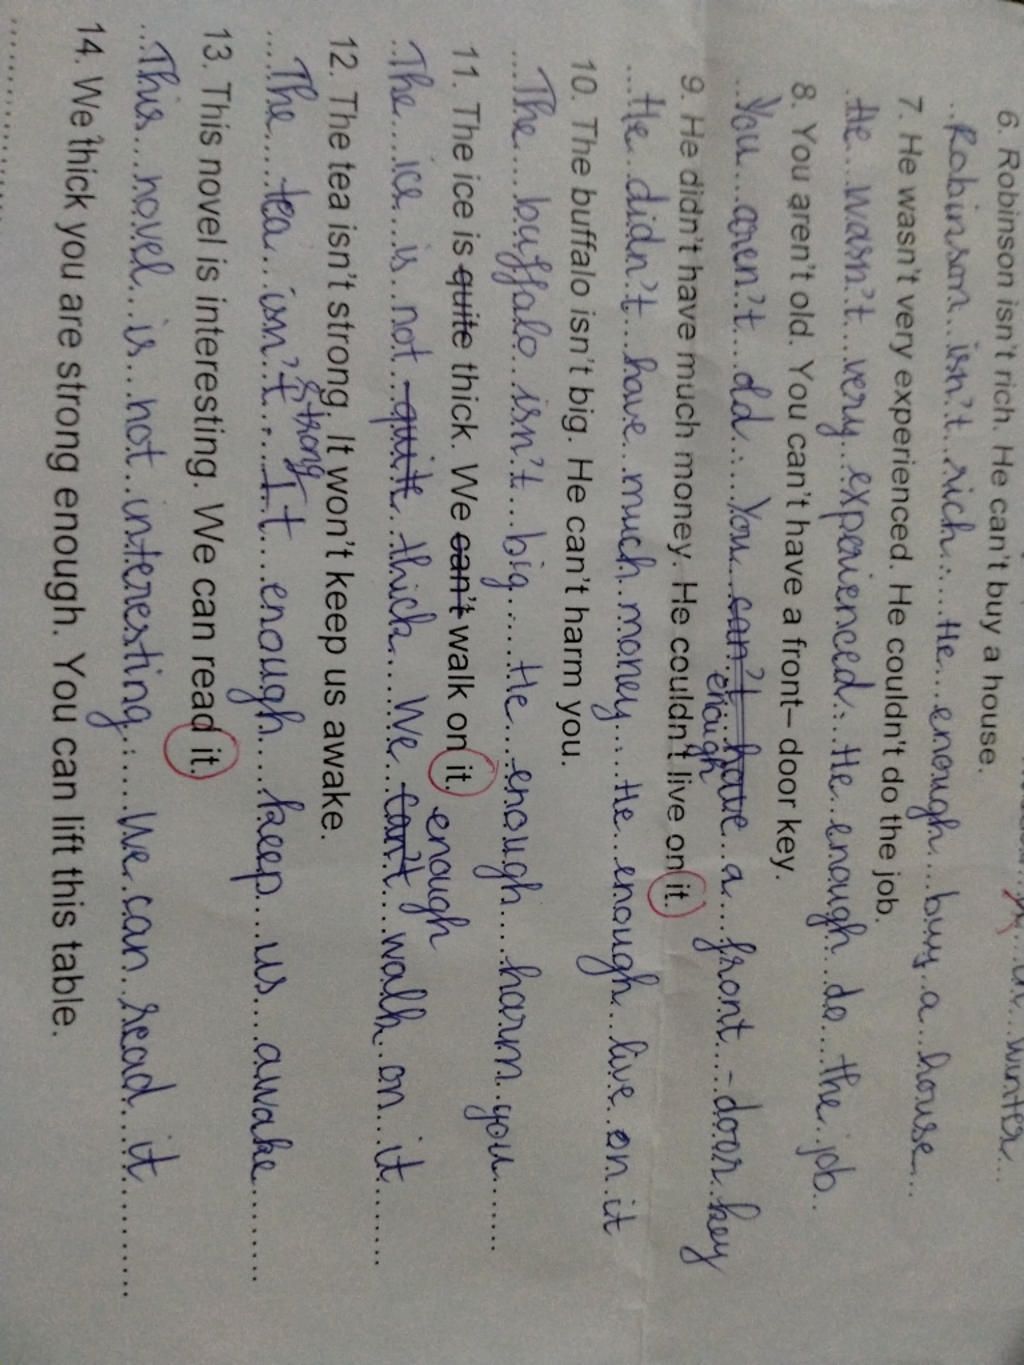 winter...
6. Robinson isn't rich. He can't buy a house.
Robinson isn't rich. He enough buy a house
7. He wasn't very experienced. He couldn't do the job.
He wasn't very experienced. He enough do the job.
8. You aren't old. You can't have a front– door key.
enough
You aren't old. You can't have a front - door key
9. He didn't have much money. He couldn't live on it.
He didn't have much money. He enough live on it
10. The buffalo isn't big. He can't harm you.
The buffalo isn't big. He enough harm you
11. The ice is quite thick. We can't walk on it.
enough
The ice is not quite thick. We can't walk on it
12. The tea isn't strong. It won't keep us awake.
strong
The tea isn't. It enough keep us awake
13. This novel is interesting. We can read it.
This novel is not interesting. We can read it
14. We thick you are strong enough. You can lift this table.